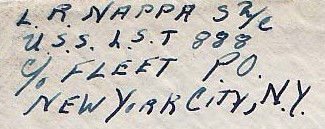 L. R. NAPPA S 2/C
U.S.S. L.S.T 888
C/o FLEET P.O.
NEW YORK CITY, N.Y.